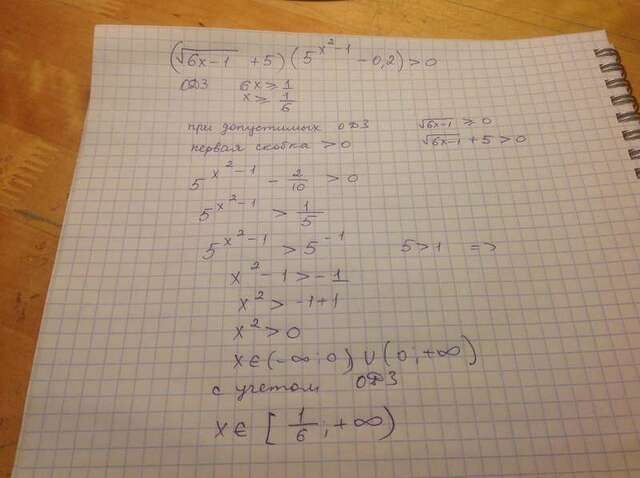 (√(6x-1) + 5)(5^(x²-1) - 0,2) > 0
ОДЗ 6x ≥ 1
x ≥ 1/6
при допустимых ОДЗ √(6x-1) ≥ 0
первая скобка > 0 √(6x-1) + 5 > 0
5^(x²-1) - 2/10 > 0
5^(x²-1) > 1/5
5^(x²-1) > 5^(-1) 5 > 1 =>
x² - 1 > -1
x² > -1+1
x² > 0
x ∈ (-∞; 0) ∪ (0; +∞)
с учетом ОДЗ
x ∈ [1/6; +∞)